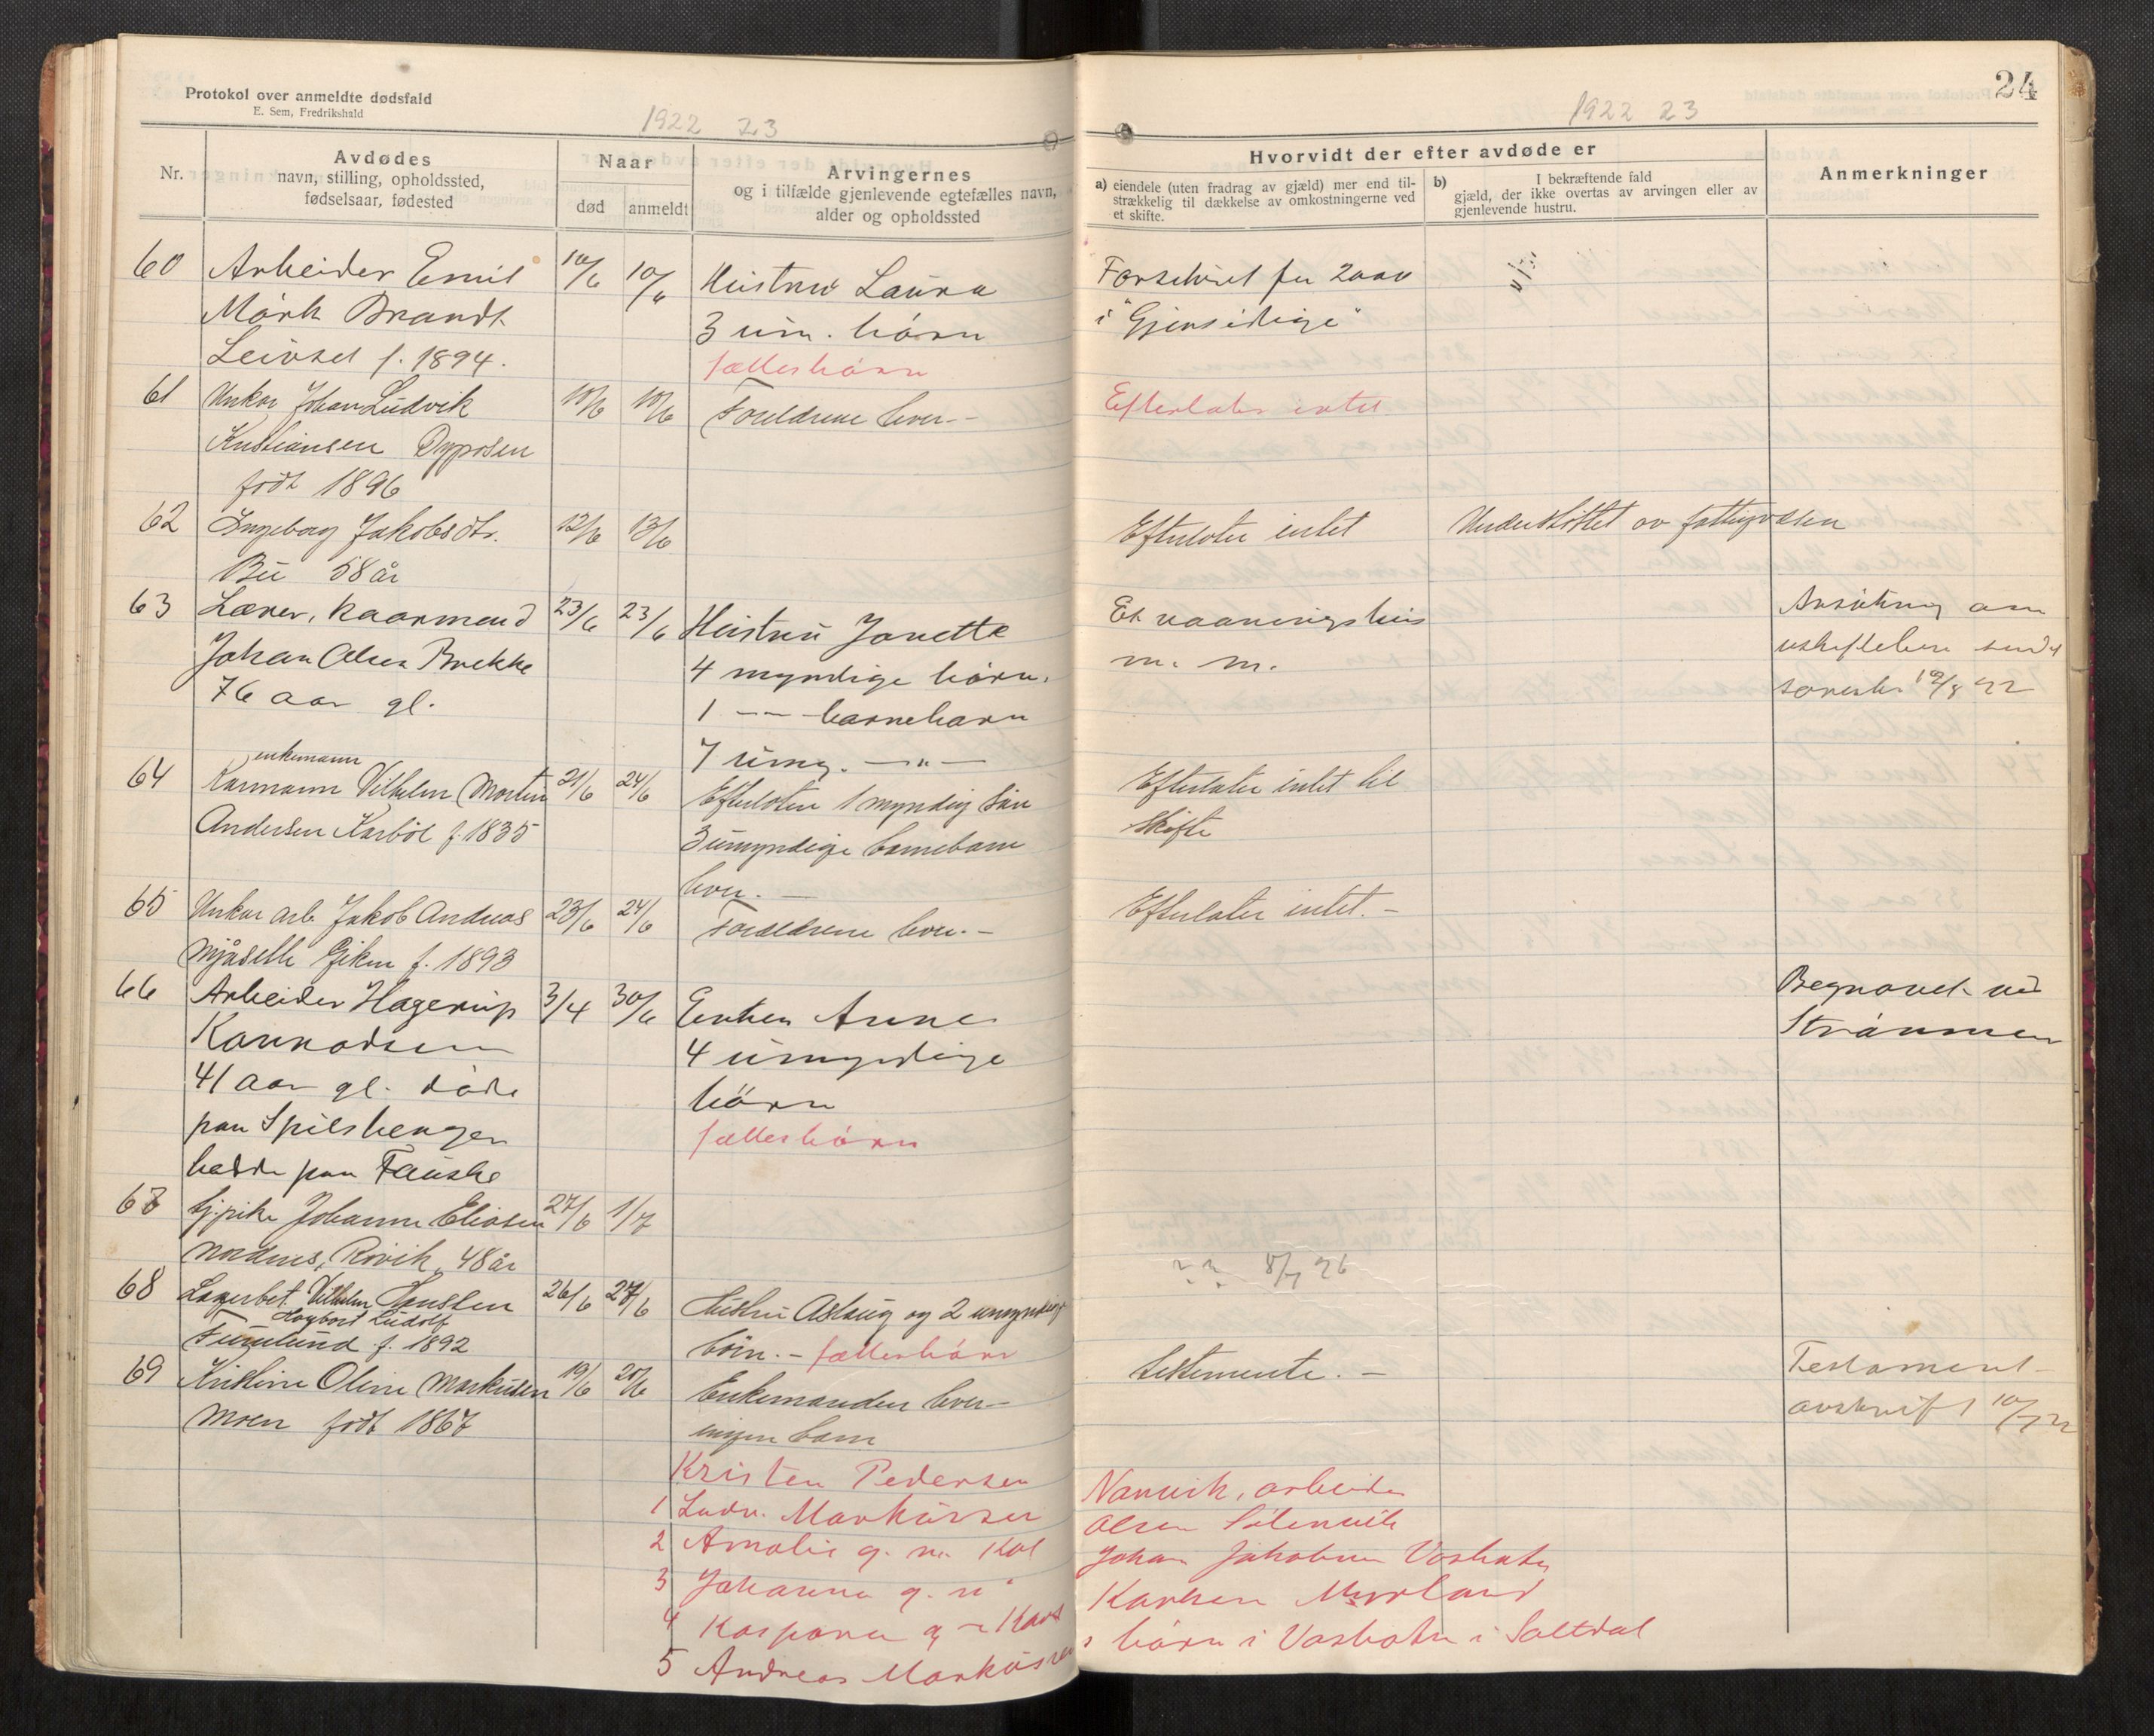 Protokol over anmeldte dødsfald
E. Sem, Fredrikshald
1922 23
Nr.
Avdødes
navn, stilling, opholdssted,
fødselsaar, fødested
Naar
død
anmeldt
Arvingernes
og i tilfælde gjenlevende egtefælles navn,
alder og opholdssted
60 Arbeider Emil 10/6 10/6 Hustru Laura
Mørk Brandt 3 um. børn
Leivset f. 1894. fællesbørn
61 Unkar Johan Ludvik 10/6 10/6 Foreldrene lever.-
Kristiansen Dyposen
født 1896
62 Ingeborg Jakobsdtr. 12/6 13/6
Bu 58 år
63 Lærer, kaarmand 23/6 23/6 Hustru Janette
Johan Olsen Brekke 4 myndige børn.
76 aar gl. 1 -"- barnebarn
7 umy. -"-
enkemann
64 Karmann Vilhelm Martin 21/6 24/6 Efterlater 1 myndig søn
Andersen Karbøl f. 1835 3 umyndige barnebarn
lever. -
65 Unkar arb. Jakob Andreas 23/6 24/6 Foreldrene lever.-
f. 1893
66 Arbeider Hagerup 3/4 30/6 Enken Anne
Konradsen 4 umyndige
41 aar gl. døde børn
paa Spitsbergen fællesbørn
bodde paa Fauske
67 Gj.pike Johanne Eliasen 27/6 1/7
Nordnes, Røvik, 48 år
68 Lagerbet. Vilhelm Hansten 26/6 27/6 Hustru Aslaug og 2 umyndige
Hagbart Ludolf
Furulund f. 1892 børn. - fællesbørn
69 Kristine Oline Markussen 19/6 20/6 Enkemanden lever-
Moen født 1867 ingen barn
Kristen Pedersen
1 Ludv. Markussen
2 Amalie g. m. Karl
3 Johanna g. m.
4 Kaspara g. m. Karl
5 Andreas Markussen
24
1922 23
Hvorvidt der efter avdøde er
a) eiendele (uten fradrag av gjæld) mer end til-
strækkelig til dækkelse av omkostningerne ved
et skifte.
b) I bekræftende fald
gjæld, der ikke overtas av arvingen eller av
gjenlevende hustru.
Anmerkninger
Forsikret for 2000
i "Gjensidige"
Efterlater intet
Efterlater intet Understøttet av fattigvæsen
Et vaaningshus Ansøkning om
m. m. uskiftebevi sendt
sorensk. 19/8 22
Efterlater intet til
skifte
Efterlater intet.-
Begravet ved
Strømmen
? ? 8/7 26
Testamente.- Testament-
avskrift 10/7 22
Narvik, arbeider
Olsen
Johan Jakobsen Vasbotn
Karlsen Myrland
s børn i Vasbotn i Saltdal